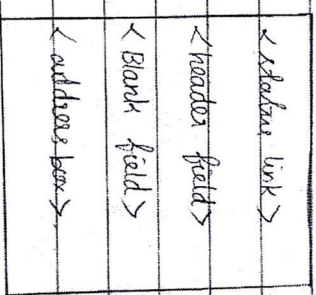 < link>
<header field>
<Blank field>
<address box>